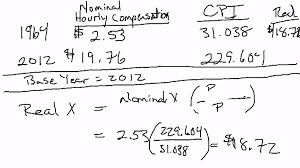 Nominal
Hourly Compensation CPI Real
1964 $ 2.53 31.038 $18.7
2012 $ 19.76 229.604
Base Year = 2012
Real X = Nominal X ( P / P )
= 2.53 ( 229.604 / 31.038 ) = $18.72